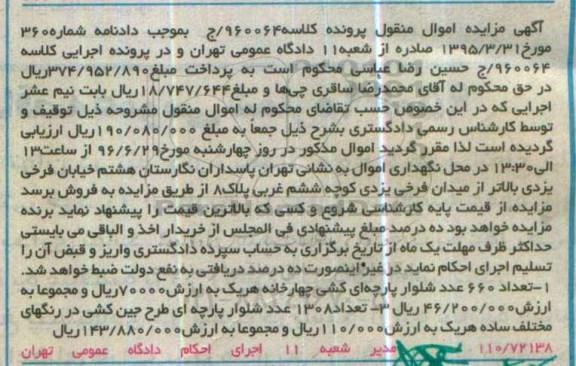 آگهی مزایده اموال منقول پرونده کلاسه۹۶۰۰۶۴/ج بموجب دادنامه شماره۳۶۰
مورخ۱۳۹۵/۳/۳۱ صادره از شعبه۱۱ دادگاه عمومی تهران و در پرونده اجرایی کلاسه
۹۶۰۰۶۴/ج حسین رضا عباسی محکوم است به پرداخت مبلغ۳۷۴/۹۵۲/۸۹۰ریال
در حق محکوم له آقای محمدرضا ساقری چی‌ها و مبلغ۱۸/۷۴۷/۶۴۴ریال بابت نیم عشر
اجرایی که در این خصوص حسب تقاضای محکوم له اموال منقول مشروحه ذیل توقیف و
توسط کارشناس رسمی دادگستری بشرح ذیل جمعا به مبلغ ۱۹۰/۰۸۰/۰۰۰ریال ارزیابی
گردیده است لذا مقرر گردید اموال مذکور در روز چهارشنبه مورخ۹۶/۶/۲۹ از ساعت۱۳
الی۱۳:۳۰ در محل نگهداری اموال به نشانی تهران پاسداران نگارستان هشتم خیابان فرخی
یزدی بالاتر از میدان فرخی یزدی کوچه ششم غربی پلاک۸ از طریق مزایده به فروش برسد
مزایده از قیمت پایه کارشناسی شروع و کسی که بالاترین قیمت را پیشنهاد نماید برنده
مزایده خواهد بود ده درصد مبلغ پیشنهادی فی المجلس از خریدار اخذ و الباقی می بایستی
حداکثر ظرف مهلت یک ماه از تاریخ برگزاری به حساب سپرده دادگستری واریز و قبض آن را
تسلیم اجرای احکام نماید در غیر اینصورت ده درصد دریافتی به نفع دولت ضبط خواهد شد.
۱-تعداد ۶۶۰ عدد شلوار پارچه‌ای کشی چهارخانه هریک به ارزش۷۰۰۰۰ریال و مجموعا به
ارزش۴۶/۲۰۰/۰۰۰ ریال ۳- تعداد۱۳۰۸ عدد شلوار پارچه ای طرح جین کشی در رنگهای
مختلف ساده هریک به ارزش۱۱۰/۰۰۰ریال و مجموعا به ارزش۱۴۳/۸۸۰/۰۰۰ریال
۱۱۰/۷۲۱۳۸ مدیر شعبه ۱۱ اجرای احکام دادگاه عمومی تهران